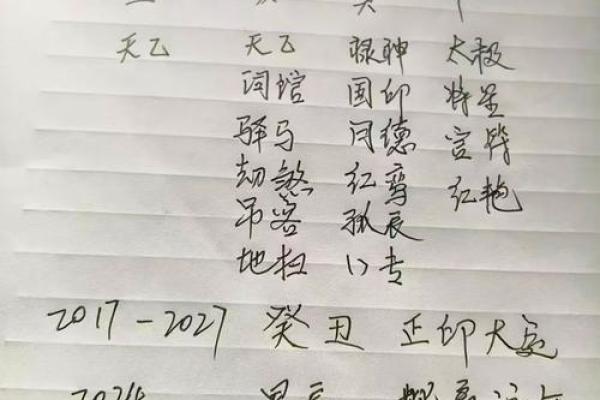 天乙 天乙 禄神 太极
词馆 国印 将星
驿马 月德
劫煞 红鸾 红艳
吊客 孤辰
地扫 八专
2017-2027 癸丑 正印大运